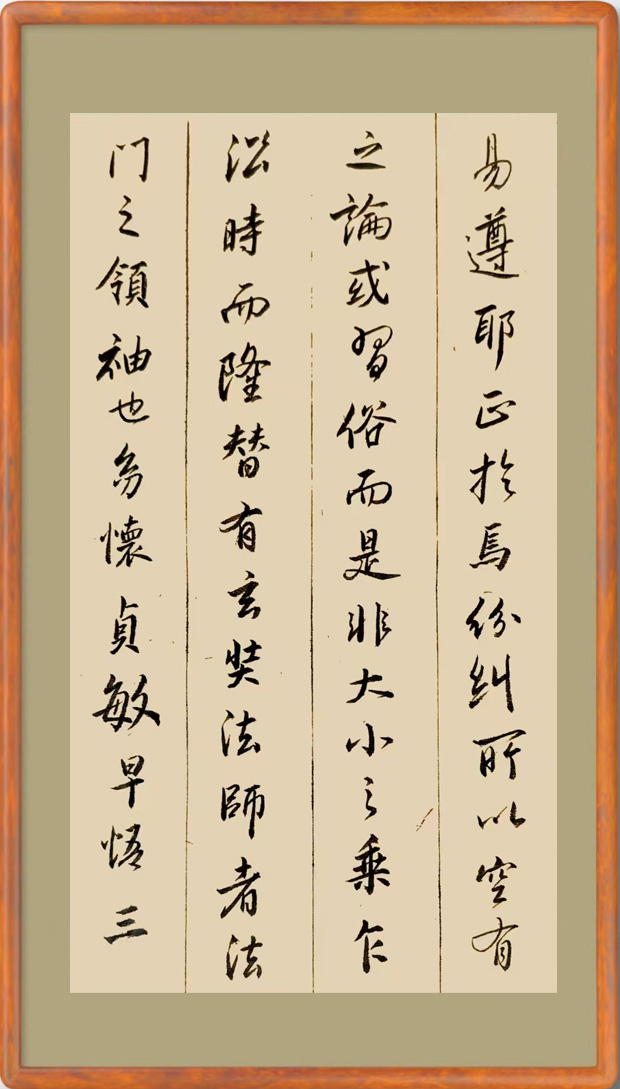 易遵耶正於焉紛糾所以空有
之論或習俗而是非大小之乗乍
沿時而隆替有玄奘法師者法
門之領袖也㓜懷貞敏早悟三